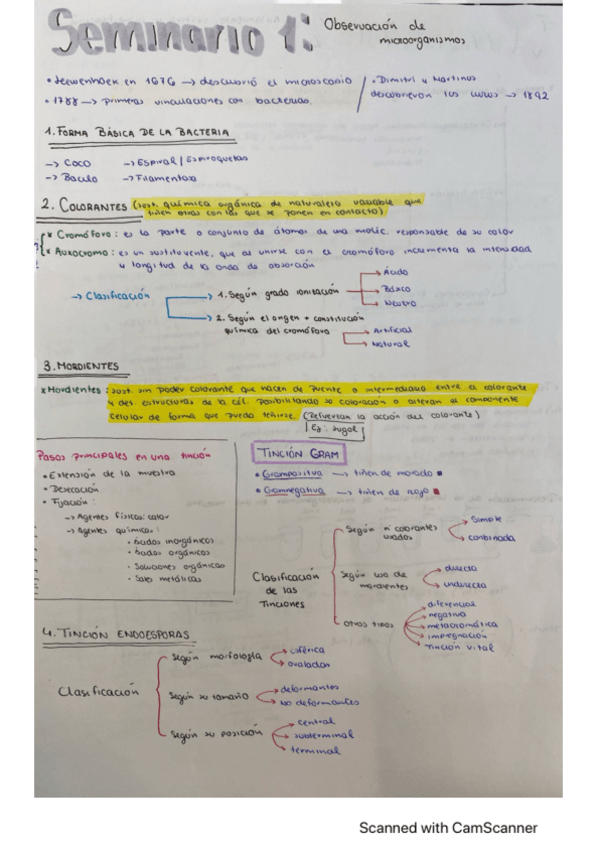 Seminario 1: Observación de
microorganismos
• Leewenhoek en 1676 → descubrió el microscopio
• 1788 → primeras vinculaciones con bacterias.
• Dimitri y Martinus
descubrieron los virus → 1892
1. FORMA BÁSICA DE LA BACTERIA
→ Coco → Espiral / Espiroquetas
→ Bacilo → Filamentosa
2. COLORANTES (sust. química orgánica de naturaleza variable que
tiñen otras con las que se ponen en contacto)
* Cromóforo: es la parte o conjunto de átomos de una moléc. responsable de su color
* Auxocromo: es un sustituyente, que al unirse con el cromóforo incrementa la intensidad
y longitud de la onda de absorción
→ Clasificación
1. Según grado ionización
Ácido
Básico
Neutro
2. Según el origen + constitución
química del cromóforo
Artificial
Natural
3. MORDIENTES
* Mordientes: sust. sin poder colorante que hacen de puente o intermediario entre el colorante
y des. estructuras de la cél. posibilitando su coloración o alteran el componente
celular de forma que pueda teñirse. (Refuerzan la acción del colorante)
Ej: lugol
Pasos principales en una tinción
• Extensión de la muestra
• Desecación
• Fijación:
→ Agentes físicos: calor
→ Agentes químicos:
• Ácidos inorgánicos
• Ácidos orgánicos
• Soluciones orgánicas
• Sales metálicas
TINCIÓN GRAM
• Grampositiva → tiñen de morado
• Gramnegativa → tiñen de rojo
Clasificación
de las
Tinciones
Según nº colorantes
usados
Simple
combinada
Según uso de
mordientes
directa
indirecta
Otros tipos
diferencial
negativa
metacromática
impregnación
Tinción vital
4. TINCIÓN ENDOESPORAS
Clasificación
Según morfología
esférica
ovaladas
Según su tamaño
deformantes
No deformantes
Según su posición
central
subterminal
terminal
Scanned with CamScanner